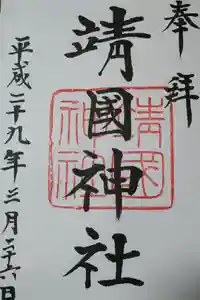 奉拝
靖國神社
靖国神社
平成二十九年三月二十六日